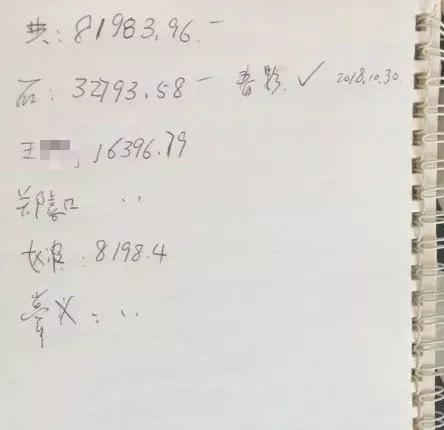 共：81983.96.—
石：32793.58 — ✓ 2018.10.30.
王 , 16396.79
郑 ‥
：8198.4
义：‥